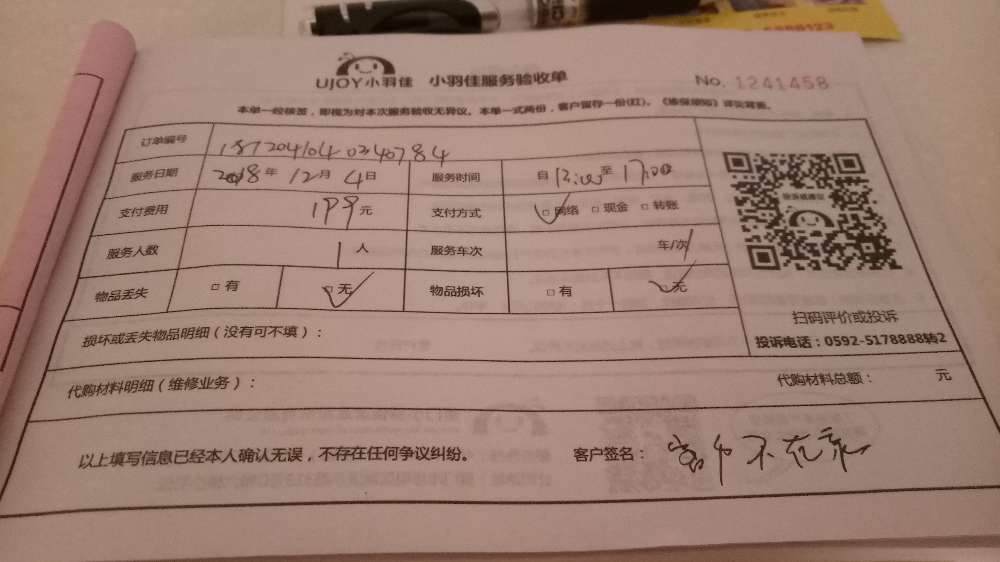 UJOY小羽佳 小羽佳服务验收单 No. 1241458
本单一经核签，即视为对本次服务验收无异议。本单一式两份，客户留存一份(红)。《维保须知》详见背面。
订单编号
服务日期 2018年 12月 4日 服务时间 自 至 17:00
支付费用 199元 支付方式 □网络 □现金 □转账
服务人数 1人 服务车次 车/次
物品丢失 □有 □无 物品损坏 □有 □无
投诉或建议
扫码评价或投诉
投诉电话：0592-5178888转2
损坏或丢失物品明细（没有可不填）：
代购材料明细（维修业务）： 代购材料总额： 元
以上填写信息已经本人确认无误，不存在任何争议纠纷。 客户签名：客户不在家